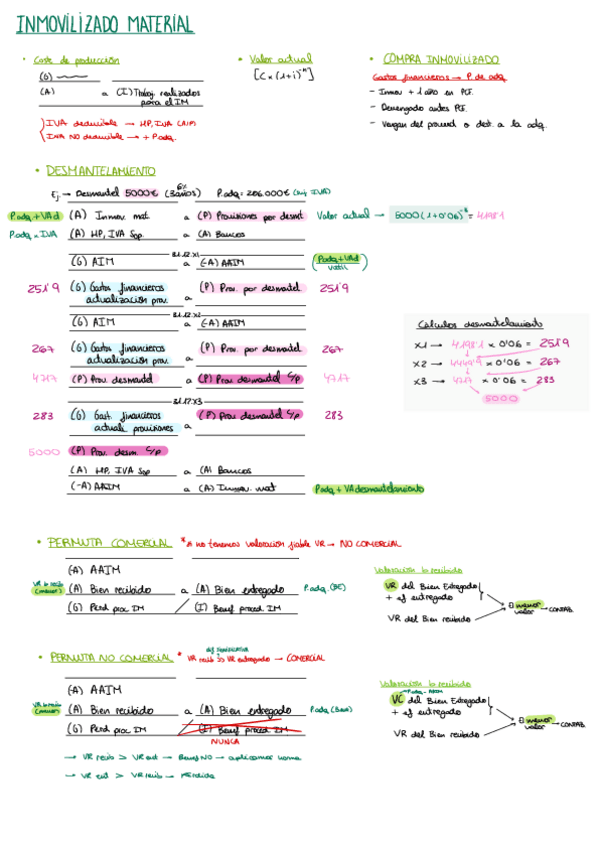 INMOVILIZADO MATERIAL
• Coste de producción
(G)
(A) a (I) Trabaj. realizados para el IM
IVA deducible → HP, IVA (A/P)
IVA NO deducible → + P.adq.
• Valor actual
[C × (1+i)⁻ⁿ]
• COMPRA INMOVILIZADO
Gastos financieros → P. de adq
- Inmov + 1 año en PCF.
- Devengado antes PCF.
- Vengan del proveed o dest. a la adq.
• DESMANTELAMIENTO
Ej → Desmantel 5000€ (3años) 6% P.adq = 206.000€ (sin IVA)
P.adq + VAd (A) Inmov. mat. a (P) Provisiones por desmt Valor actual → 5000(1+0'06)⁻³ = 4198'1
P.adq × IVA (A) HP, IVA Sop. a (A) Bancos
31.12.X1
(G) AIM a (-A) AAIM (P.adq + VAd / v.útil)
251'9 (G) Gastos financieros actualización prov. a (P) Prov. por desmantel 251'9
31.12.X2
(G) AIM a (-A) AAIM
267 (G) Gastos financieros actualización prov. a (P) Prov. por desmantel 267
4717 (P) Prov. desmantel a (P) Prov. desmantel c/p 4717
31.12.X3
283 (G) Gast. financieros actuali. provisiones a (P) Prov. desmantel c/p 283
5000 (P) Prov. desm. c/p
(A) HP, IVA Sop a (A) Bancos
(-A) AAIM a (A) Inmov. mat P.adq + VAdesmantelamiento
Cálculos desmantelamient
X1 → 4198'1 × 0'06 = 251'9
X2 → 4449'9 × 0'06 = 267
X3 → 4717 × 0'06 = 283
5000
• PERMUTA COMERCIAL * si no tenemos valoración fiable VR → NO COMERCIAL
(-A) AAIM
VR b. recib (menor) (A) Bien recibido a (A) Bien entregado P.adq. (BE)
(G) Perd proc IM (I) Benef proced. IM
Valoración lo recibido
VR del Bien Entregado
+ ef entregado
VR del Bien recibido
El menor valor → CONTAB.
• PERMUTA NO COMERCIAL * VR recib >> VR entregado → COMERCIAL
dif. SIGNIFICATIVA
(-A) AAIM
VR b recib (menor) (A) Bien recibido a (A) Bien entregado P.adq
(G) Perd proc IM (I) Benef proced IM
NUNCA
→ VR recib > VR ent → Benef NO → aplicamos norma
→ VR ent > VR recib → Pérdida
Valoración lo recibido
P.adq - AAIM
VC del Bien Entregado
+ ef entregado
VR del Bien recibido
El menor valor → CONTAB.